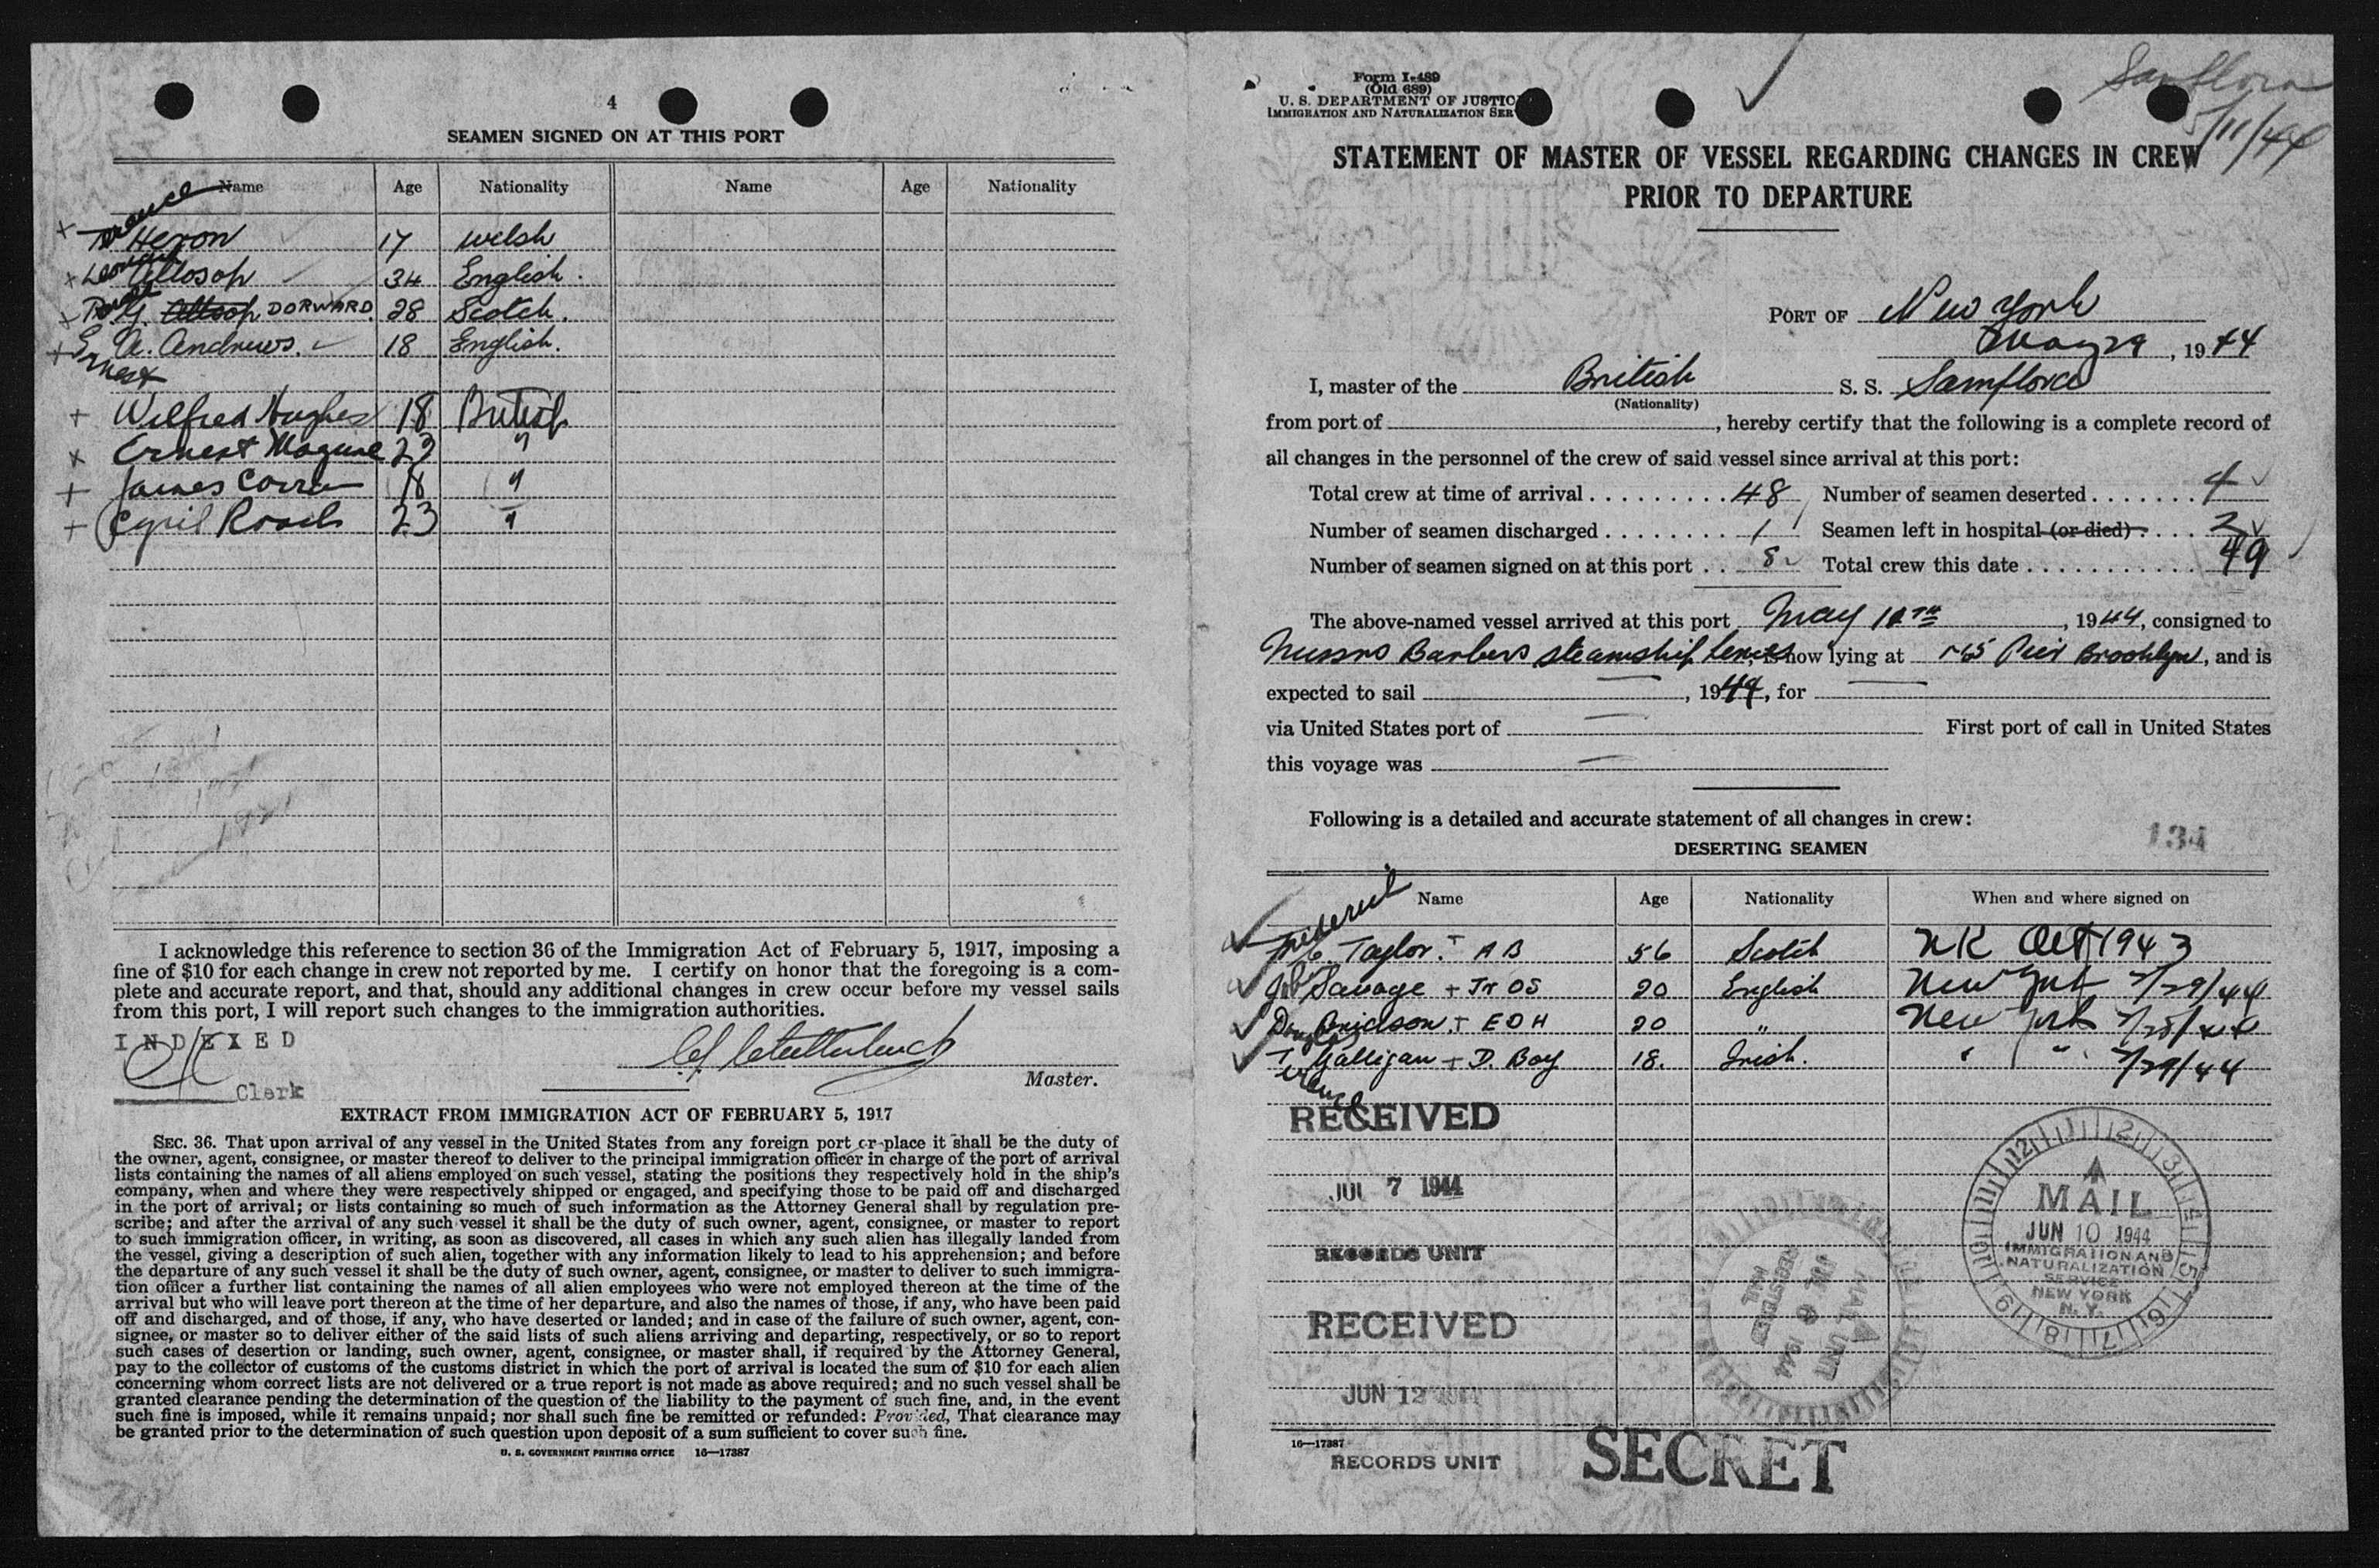 4
SEAMEN SIGNED ON AT THIS PORT
Name Age Nationality Name Age Nationality
Terence Heron 17 Welsh
Allosop 34 English.
G. Allsop DORWARD 28 Scotch.
E A. Andrews. 18 English.
Ernest
Wilfred Hughes 18 British
Ernest Maguire "
James 18 "
Cyril Roach 23 "
I acknowledge this reference to section 36 of the Immigration Act of February 5, 1917, imposing a
fine of $10 for each change in crew not reported by me. I certify on honor that the foregoing is a com-
plete and accurate report, and that, should any additional changes in crew occur before my vessel sails
from this port, I will report such changes to the immigration authorities.
INDEXED
Clerk
Master.
EXTRACT FROM IMMIGRATION ACT OF FEBRUARY 5, 1917
SEC. 36. That upon arrival of any vessel in the United States from any foreign port or place it shall be the duty of
the owner, agent, consignee, or master thereof to deliver to the principal immigration officer in charge of the port of arrival
lists containing the names of all aliens employed on such vessel, stating the positions they respectively hold in the ship's
company, when and where they were respectively shipped or engaged, and specifying those to be paid off and discharged
in the port of arrival; or lists containing so much of such information as the Attorney General shall by regulation pre-
scribe; and after the arrival of any such vessel it shall be the duty of such owner, agent, consignee, or master to report
to such immigration officer, in writing, as soon as discovered, all cases in which any such alien has illegally landed from
the vessel, giving a description of such alien, together with any information likely to lead to his apprehension; and before
the departure of any such vessel it shall be the duty of such owner, agent, consignee, or master to deliver to such immigra-
tion officer a further list containing the names of all alien employees who were not employed thereon at the time of the
arrival but who will leave port thereon at the time of her departure, and also the names of those, if any, who have been paid
off and discharged, and of those, if any, who have deserted or landed; and in case of the failure of such owner, agent, con-
signee, or master so to deliver either of the said lists of such aliens arriving and departing, respectively, or so to report
such cases of desertion or landing, such owner, agent, consignee, or master shall, if required by the Attorney General,
pay to the collector of customs of the customs district in which the port of arrival is located the sum of $10 for each alien
concerning whom correct lists are not delivered or a true report is not made as above required; and no such vessel shall be
granted clearance pending the determination of the question of the liability to the payment of such fine, and, in the event
such fine is imposed, while it remains unpaid; nor shall such fine be remitted or refunded: Provided, That clearance may
be granted prior to the determination of such question upon deposit of a sum sufficient to cover such fine.
U. S. GOVERNMENT PRINTING OFFICE 16—17387
Form I-489
(Old 689)
U. S. DEPARTMENT OF JUSTIC
IMMIGRATION AND NATURALIZATION SER
Samflora
5/11/44
STATEMENT OF MASTER OF VESSEL REGARDING CHANGES IN CREW
PRIOR TO DEPARTURE
PORT OF New York
May 29, 1944
I, master of the British S. S. Samflora
(Nationality)
from port of , hereby certify that the following is a complete record of
all changes in the personnel of the crew of said vessel since arrival at this port:
Total crew at time of arrival 48 Number of seamen deserted 4
Number of seamen discharged 1 Seamen left in hospital (or died) 2
Number of seamen signed on at this port 8 Total crew this date 49
The above-named vessel arrived at this port May , 1944, consigned to
Barbers steamship lines, is now lying at Pier Brooklyn, and is
expected to sail , 1944, for
via United States port of First port of call in United States
this voyage was
Following is a detailed and accurate statement of all changes in crew:
134
DESERTING SEAMEN
Name Age Nationality When and where signed on
Frederick
Taylor. + AB 56 Scotch NK Oct 1943
Savage + Jr OS 20 English New York /29/44
Douglas + EDH 20 " New York
T Galligan + D. Boy 18. Irish. " " /29/44
Terence
RECEIVED
JUL 7 1944
RECORDS UNIT
MAIL
JUN 10 1944
IMMIGRATION AND
NATURALIZATION
SERVICE
NEW YORK
N. Y.
MAIL UNIT
JUL 6 1944
REGISTERED
MAIL
RECEIVED
JUN 12 1944
16—17387
RECORDS UNIT
SECRET